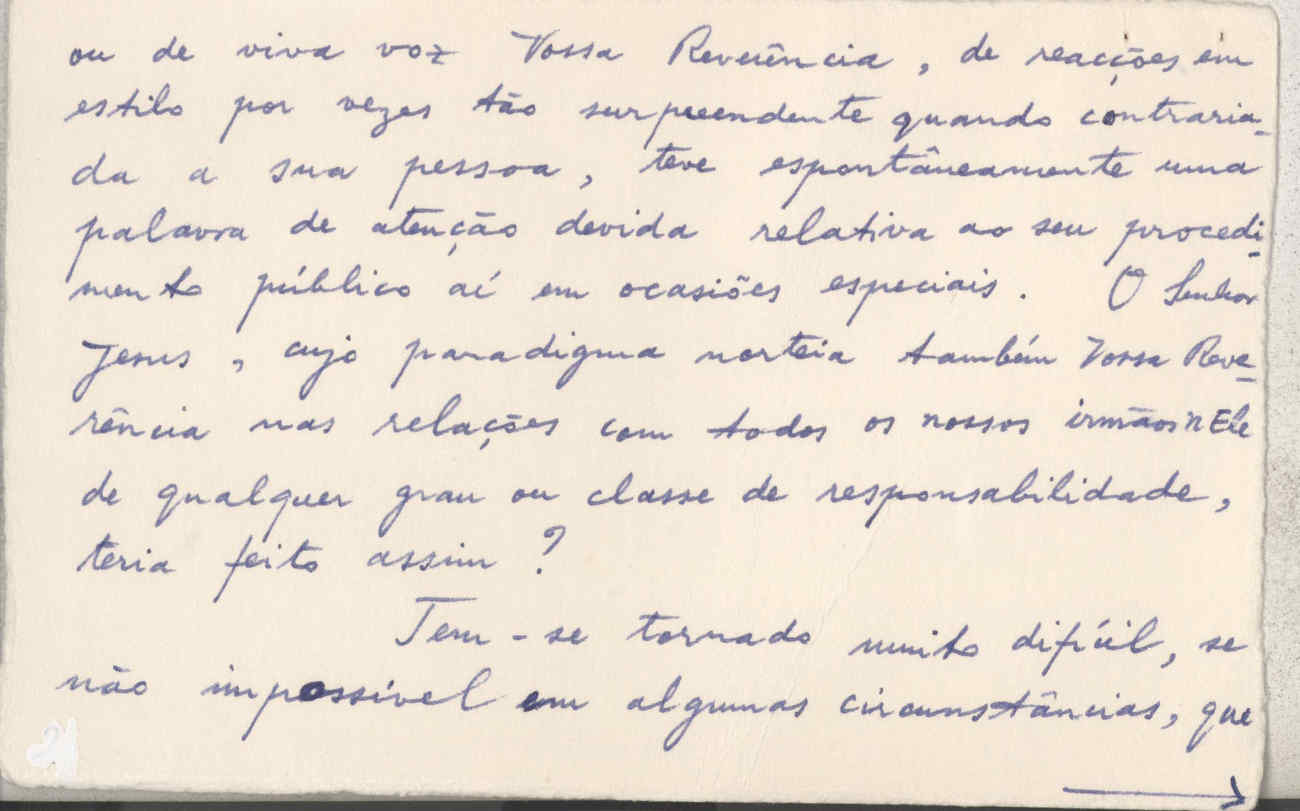 ou de viva voz Vossa Reverência, de reacções em
estilo por vezes tão surpreendente quando contraria-
da a sua pessoa, teve espontâneamente uma
palavra de atenção devida relativa ao seu procedi-
mento público aí em ocasiões especiais. O Senhor
Jesus, cujo paradigma norteia também Vossa Reve-
rência nas relações com todos os nossos irmãos n'Ele
de qualquer grau ou classe de responsabilidade,
teria feito assim?
Tem-se tornado muito difícil, se
não impossível em algumas circunstâncias, que